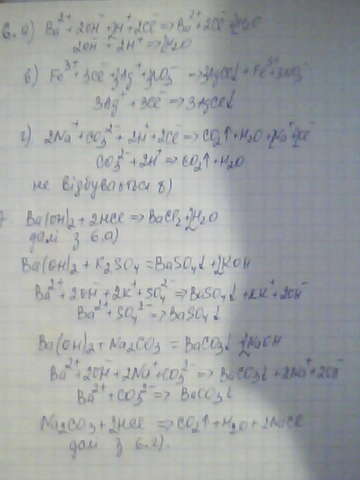 6. а) Ba²⁺ + 2OH⁻ + 2H⁺ + 2Cl⁻ => Ba²⁺ + 2Cl⁻ + 2H₂O
2OH⁻ + 2H⁺ => 2H₂O
в) Fe³⁺ + 3Cl⁻ + 3Ag⁺ + 3NO₃⁻ => 3AgCl↓ + Fe³⁺ + 3NO₃⁻
3Ag⁺ + 3Cl⁻ => 3AgCl↓
г) 2Na⁺ + CO₃²⁻ + 2H⁺ + 2Cl⁻ => CO₂↑ + H₂O + 2Na⁺ + 2Cl⁻
CO₃²⁻ + 2H⁺ => CO₂↑ + H₂O
не відбувається б)
7. Ba(OH)₂ + 2HCl => BaCl₂ + 2H₂O
далі з 6.а)
Ba(OH)₂ + K₂SO₄ = BaSO₄↓ + 2KOH
Ba²⁺ + 2OH⁻ + 2K⁺ + SO₄²⁻ => BaSO₄↓ + 2K⁺ + 2OH⁻
Ba²⁺ + SO₄²⁻ => BaSO₄↓
Ba(OH)₂ + Na₂CO₃ = BaCO₃↓ + 2NaOH
Ba²⁺ + 2OH⁻ + 2Na⁺ + CO₃²⁻ => BaCO₃↓ + 2Na⁺ + 2OH⁻
Ba²⁺ + CO₃²⁻ => BaCO₃↓
Na₂CO₃ + 2HCl => CO₂↑ + H₂O + 2NaCl
далі з 6.г).